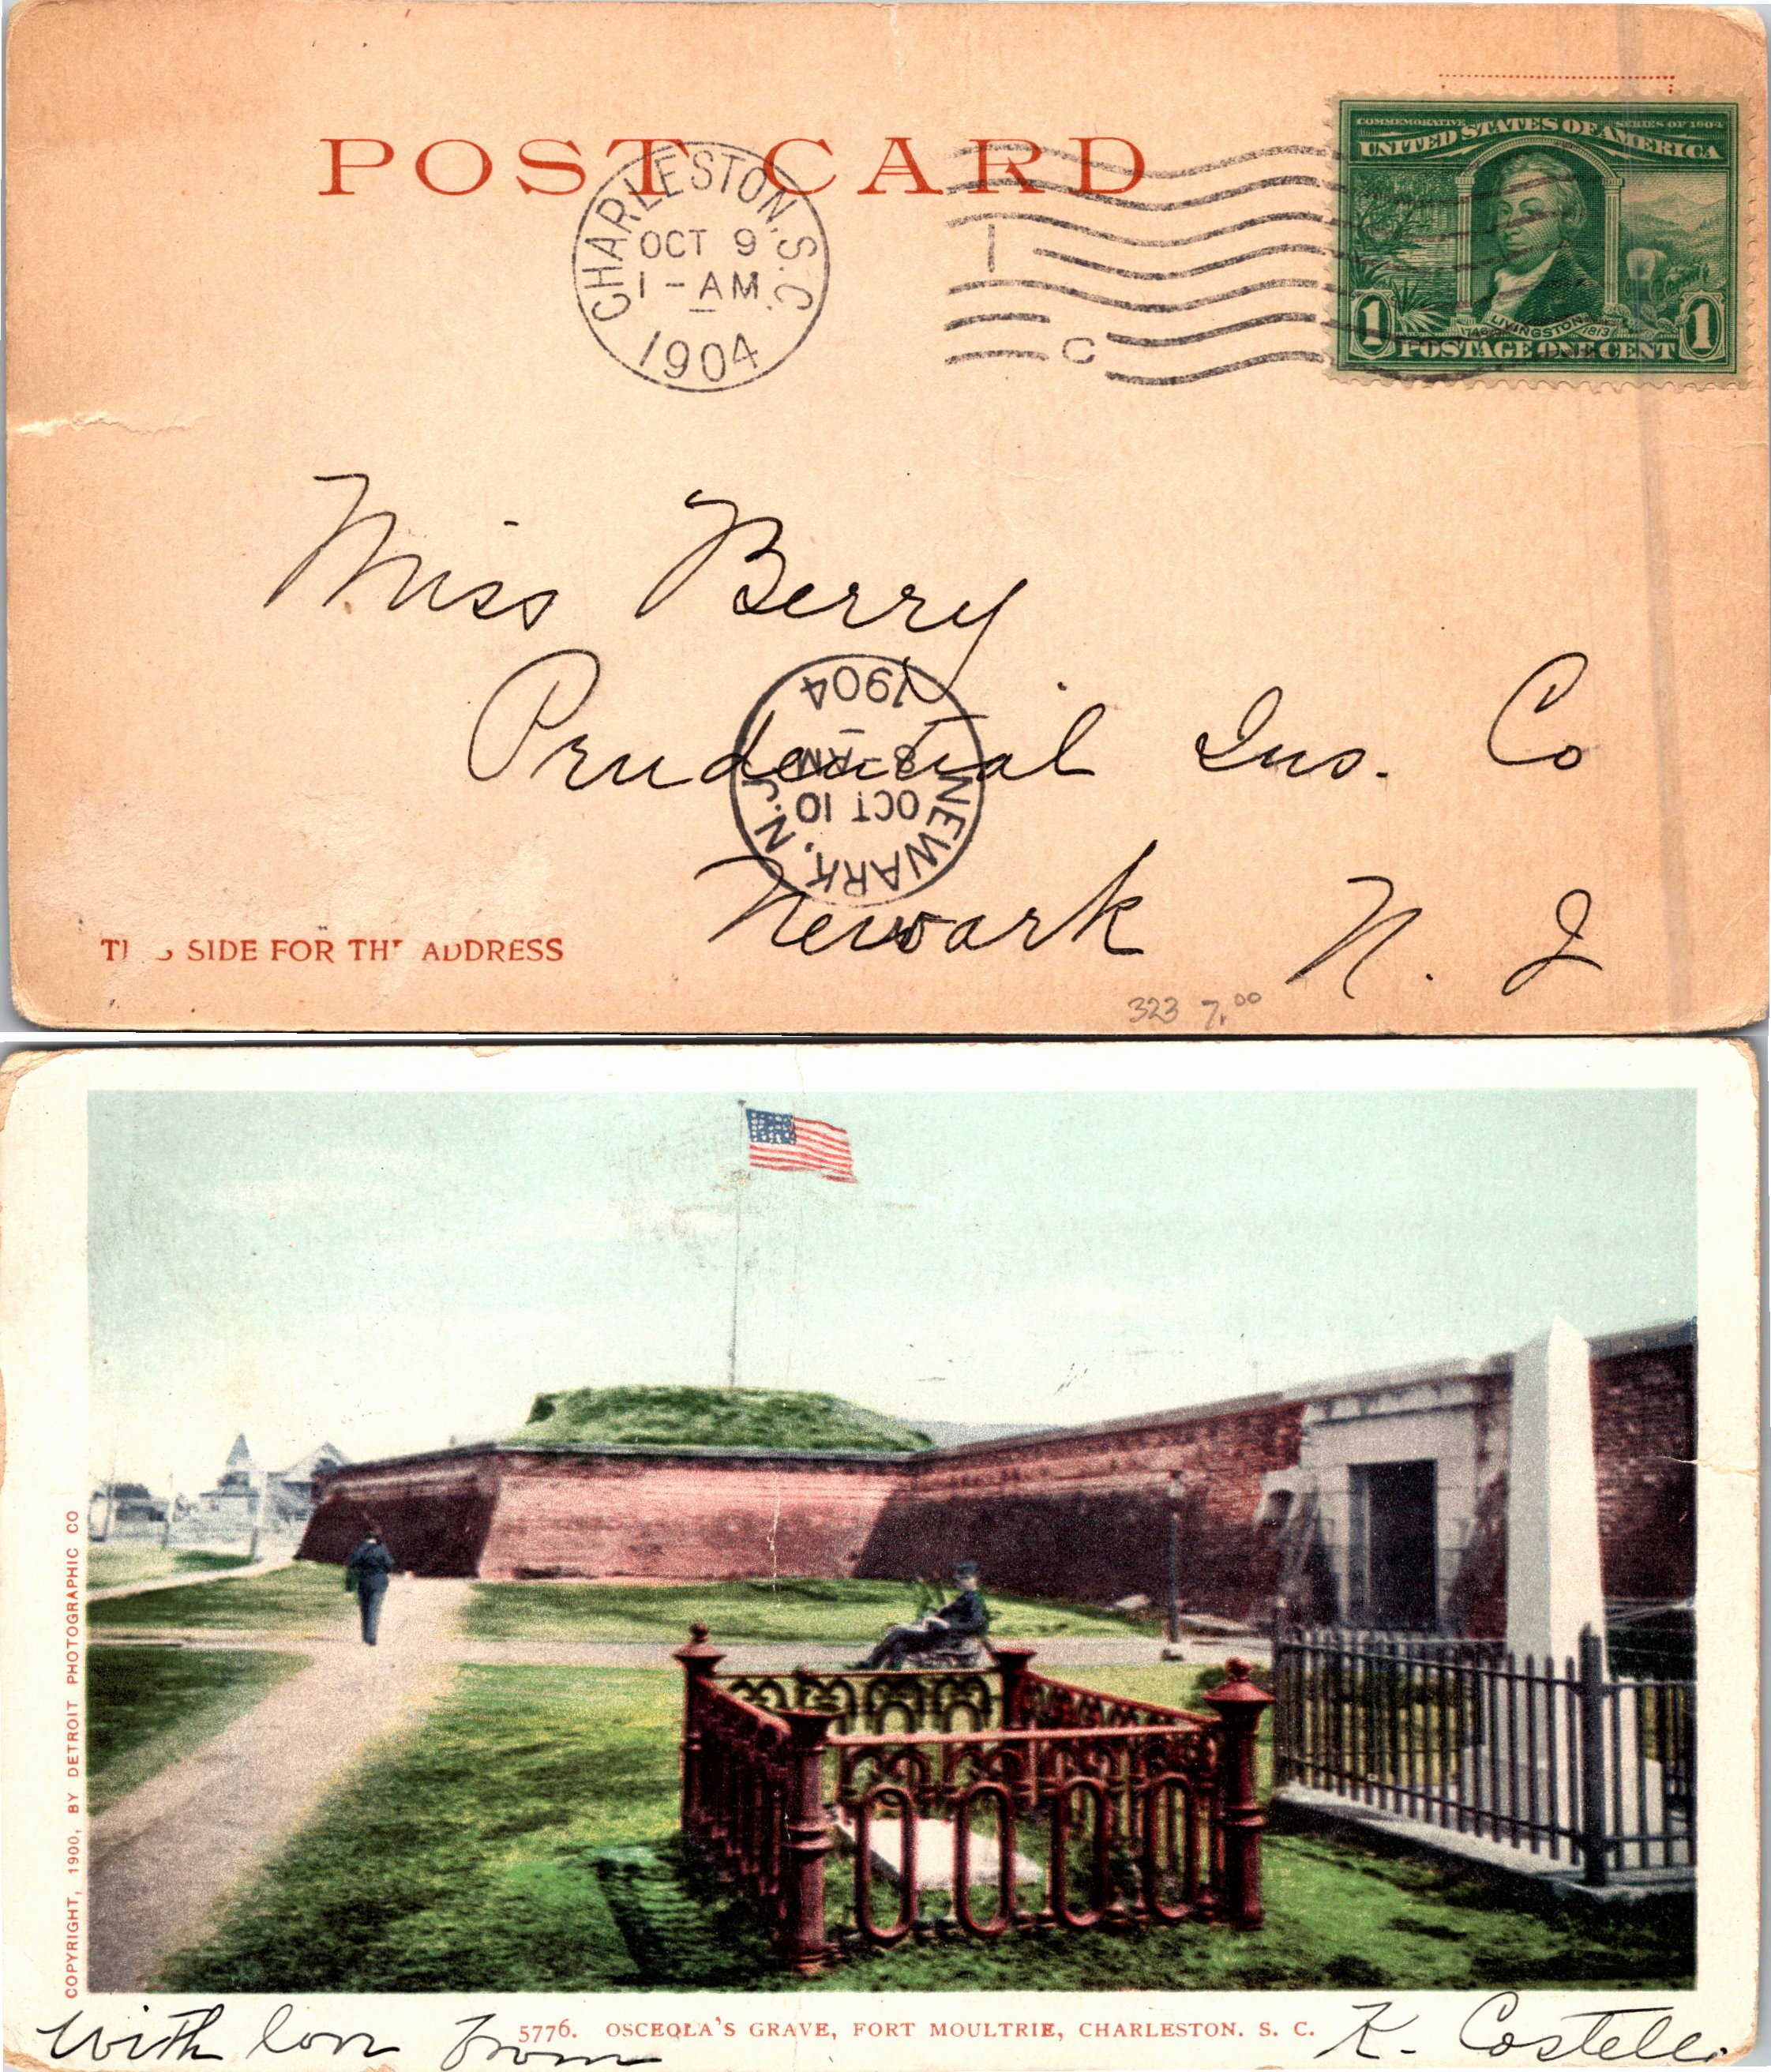 POST CARD
COMMEMORATIVE SERIES OF 1904
UNITED STATES OF AMERICA
1748 LIVINGSTON 1813
1 POSTAGE ONE CENT 1
CHARLESTON, S.C.
OCT 9
1-AM
1904
1
C
Miss Berry
Prudential Ins. Co
Newark N. J
NEWARK, N.J.
OCT 10
8-AM
1904
THIS SIDE FOR THE ADDRESS
323 7.00
COPYRIGHT, 1900, BY DETROIT PHOTOGRAPHIC CO
5776. OSCEOLA'S GRAVE, FORT MOULTRIE, CHARLESTON. S. C.
With love from K. Costello